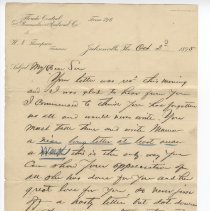 Florida Central
and Peninsular Railroad Co.
Form 276
W. N. Thompson
Jacksonville, Fla. Oct 2d 1895
Subject
My Dear Son
Your letter was rec'd this morning
and I was glad to hear from you
I commenced to think you had forgotten
us all and would never write. You
must take time and write Mamma
a nice long letter at least once a
Week this is the only way you
can show your appreciation of
all she has done for you and the
great love for you. So never from
off a hasty letter but sit down